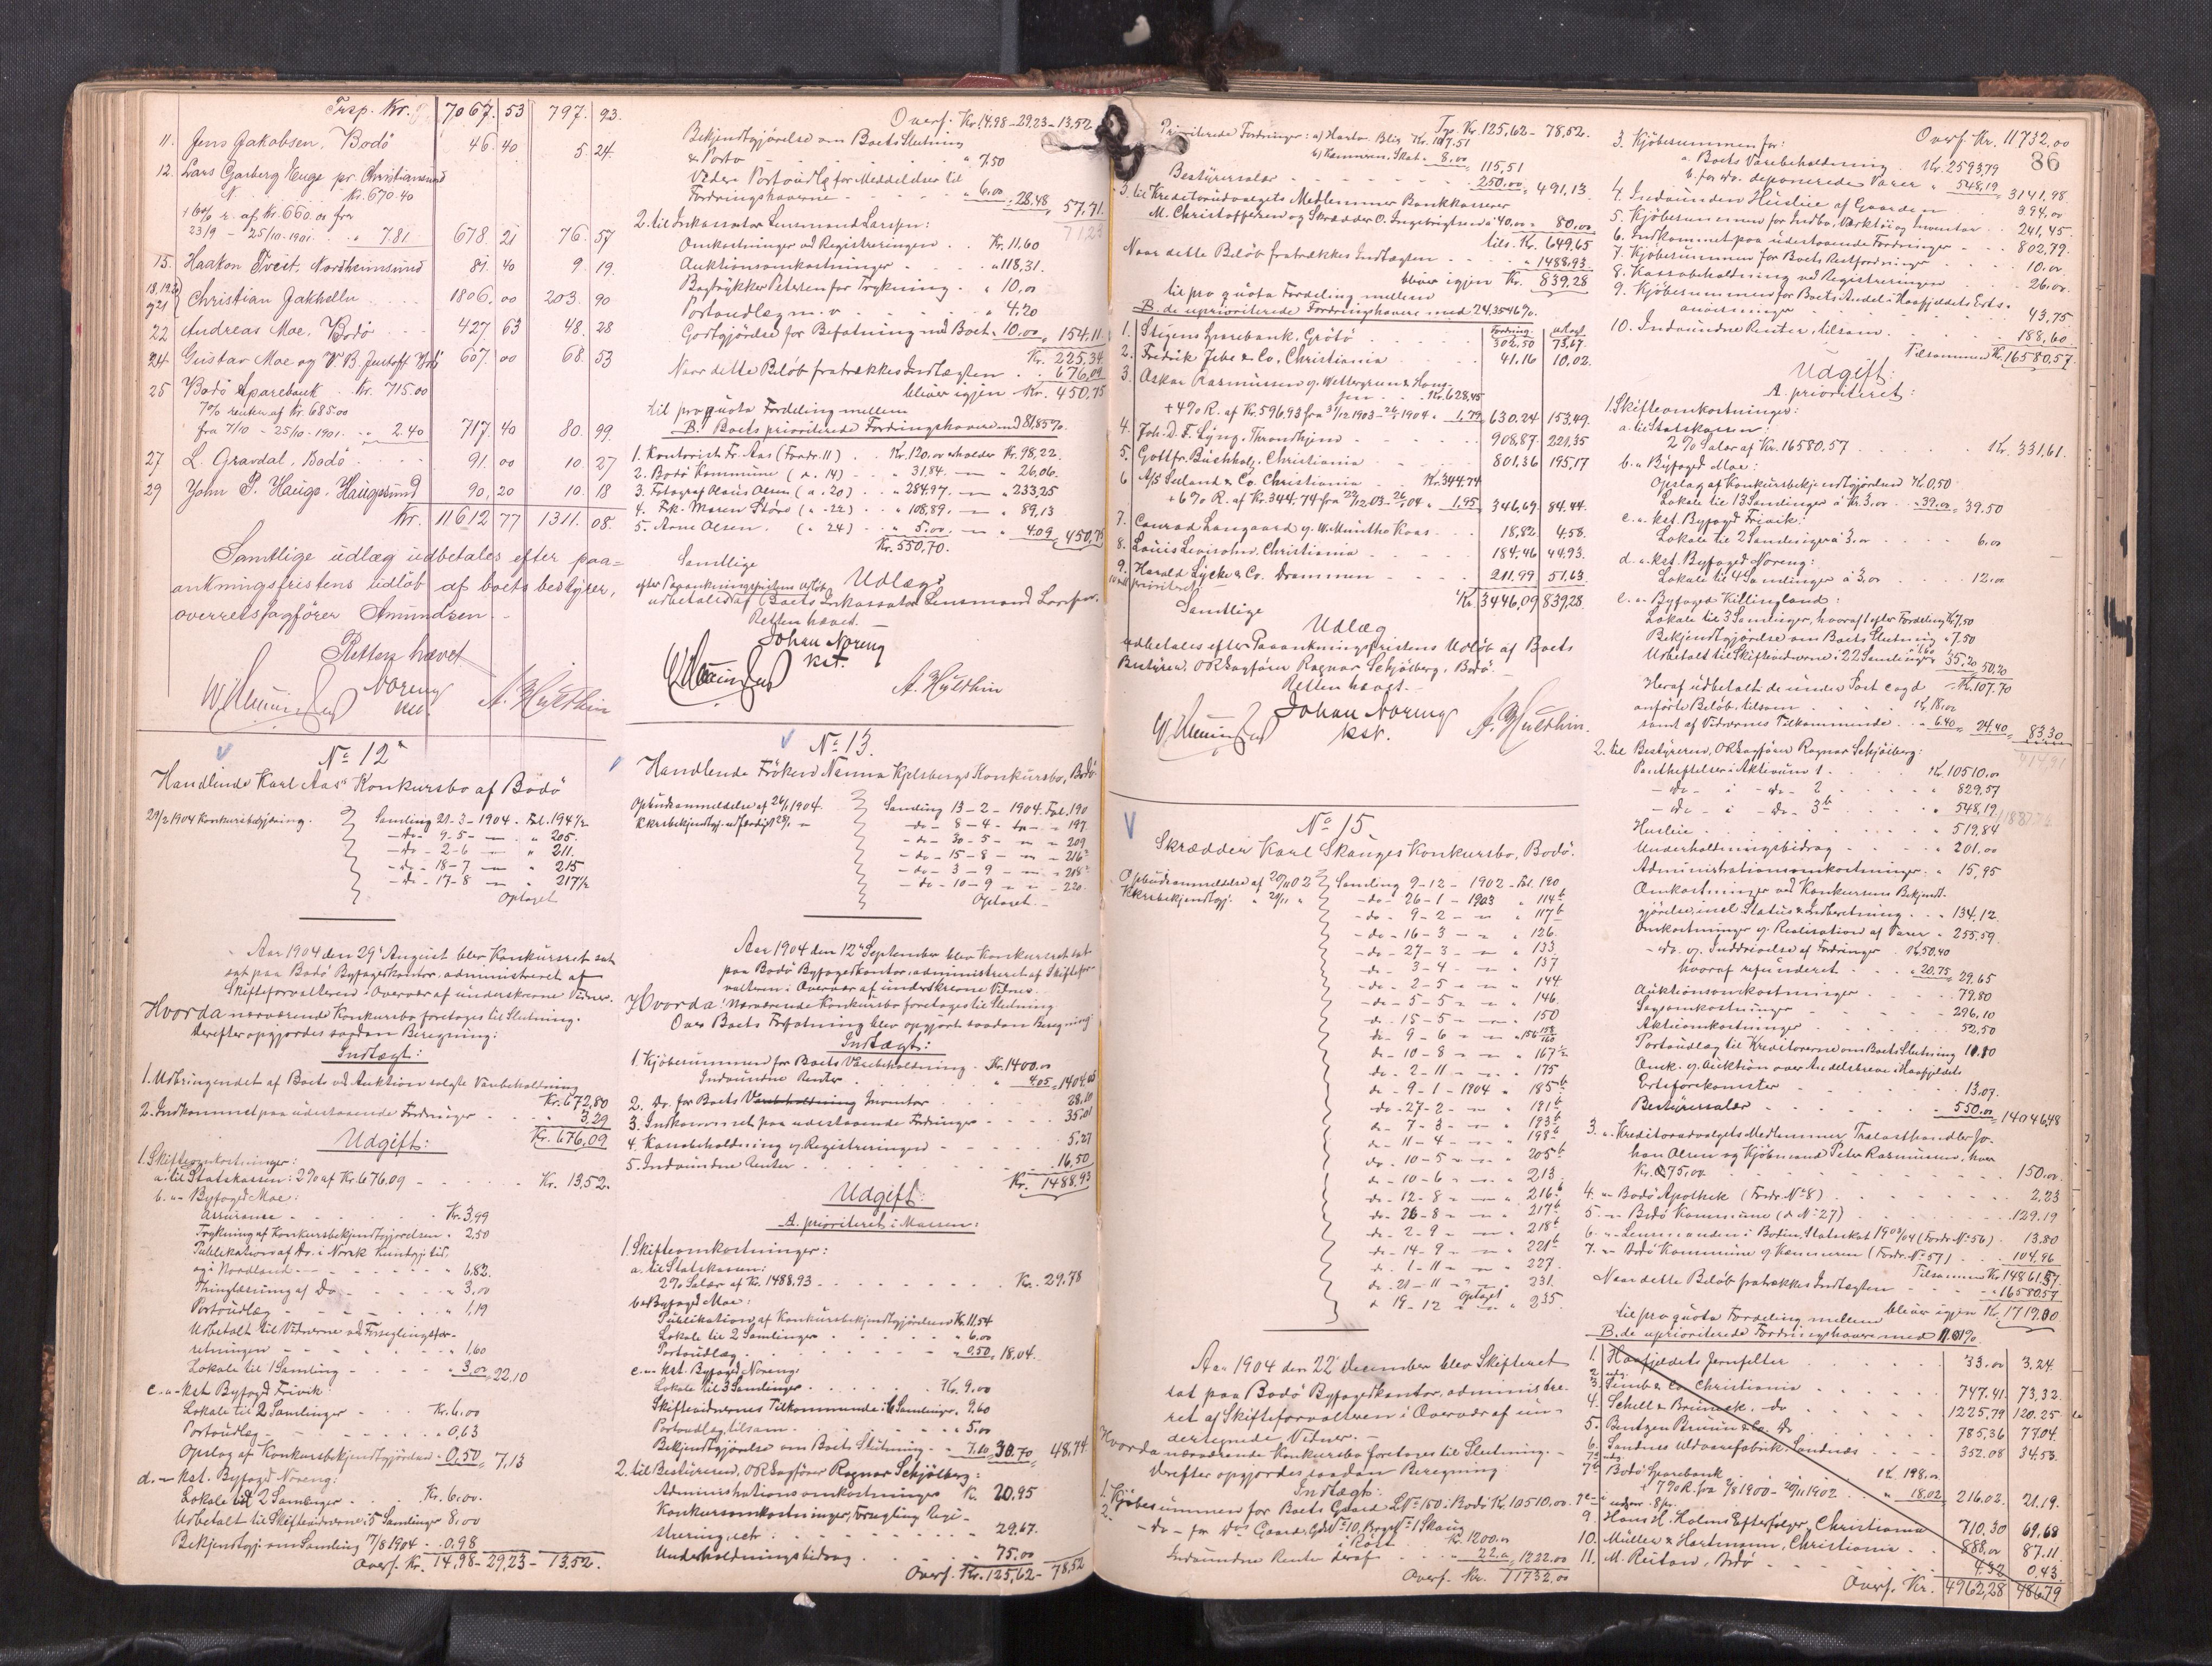 Trsp. Kr. 7067.53 797.93.
11. Jens Jakobsen, Bodö 46.40 5.24.
12. Lars Garberg Enge pr. Christiansund
N. Kr. 670.40
+ 6% r. af Kr. 660.00 fra
23/9 - 25/10-1901. " 7.81 678 21 76 57
15. Haakon Tveit, Nordheimsund 81 40 9 19.
18,19,20 og 21 Christian Jakhelln 1806.00 203 90
22 Andreas Moe, Bodö 427 63 48 28
24 Gustav Moe og V. B. Bodö 607 00 68 53
25 Bodö Sparebank Kr. 715.00
7% renter af Kr. 685.00
fra 7/10 - 25/10-1901. " 2.40 717 40 80 99
27 L. Gravdal, Bodö 91 00 10 27
29 John P. Hauge, Haugesund 90,20 10 18
Kr. 11612 77 1311.08.
Samtlige udlæg udbetales efter paa-
ankningsfristens udlöb af boets bestyrer,
overretssagförer Amundsen.
Retten hævet
Noreng
kst.
A. Hulthin
No 12
Handlende Karl Aas' Konkursbo af Bodö
29/2 1904 Konkursbegjæring. Samling 21-3-1904. Fol. 194 1/2
-do- 9-5- — " 205.
-do- 2-6 — " 211.
-do- 18-7 — " 215
-do- 17-8 — " 217 1/2
Optaget
Aar 1904 den 29' August blev Konkursret sat
sat paa Bodö Byfogedkontor, administreret af
Skifteforvalteren i Overvær af underskrevne Vidner.
Hvorda nærværende Konkursbo foretoges til Slutning.
Derefter opgjordes saadan Beregning:
Indtægt:
1. Udbringendet af Boets ved Auktion solgte Varebeholdning
Kr. 672,80
2. Indkommet paa udestaaende Fordringer " 3,29
Kr. 676,09
Udgift:
1. Skifteomkostninger:
a. til Statskassen: 2% af Kr. 676.09 Kr. 13,52.
b. " Byfoged Moe:
Assurance Kr. 3,99
Trykning af Konkursbekjendtgjørelsen " 2,50
Publikation af do. i Norsk Kundgj. tid.
og i Nordland " 6,82.
Thinglæsning af Do " 3,00
Portoudlæg " 1,19
Udbetalt til Vidnerne ved Forseglingsfor-
retningen " 1,60
Lokale til 1 Samling " 3.00 22,10
c. " kst. Byfoged Frivik:
Lokale til 2 Samlinger Kr. 6.00
Portoudlæg " 0,63
Opslag af Konkursbekjendtgjørelsen " 0,50 " 7,13
d. " kst. Byfoged Noreng:
Lokale til 2 Samlinger Kr. 6.00.
Udbetalt til Skiftevidnerne i 5 Samlinger 8,00
Bekjendtgj. om Samling 17/8 1904 " 0.98
Overf. Kr. 14,98 - 29,23 - 13,52.
Overf. Kr. 14.98 - 29.23 - 13.52
Bekjendtgjörelse om Boets Slutning
& Porto " 7.50
Videre Portoudlæg for Meddelelser til
Fordringshaverne " 6.00 " 28,48, 57,71.
2. til Inkassator Lensmand Larssen:
Omkostninger ved Registreringen Kr. 11,60
Auktionsomkostninger " 118,31.
Bogtrykker Petersen for Trykning " 10,00
Portoudlæg m.v. " 4,20
Godtgjörelse for Befatning med Boet " 10.00 " 154,11.
Kr. 225,34
Naar dette Beløb fratrækkes Indtægten " 676,09
bliver igjen Kr. 450,75
til pro quota Fordeling mellem
B. Boets prioriterede Fordringshavere med 81,85%.
1. Kontorist Fr. Aas (Fordr. 11) Kr. 120,00 erholder Kr. 98,22.
2. Bodö Kommune (d. 14) " 31,84. — " 26,06.
3. Fotograf Olaus Olsen (d. 20) " 284,97. — " 233,25
4. Frk. Maren Störe (d. 22) " 108,89. — " 89,13
5. Arne Olsen. (d. 24) " 5.00. — " 4.09 " 450,75
Kr. 550,70.
Samtlige
Udlæg
efter Paaankningsfristens Udløb
udbetales af Boets Inkassator Lensmand Larssen.
Retten hævet. —
Johan Noreng
kst.
A. Hulthin
No 13.
Handlende Fröken Nanna Kjelsbergs Konkursbo, Bodö
Opbudsanmeldelse af 26/1 1904. Samling 13-2-1904. Fol. 190
-do- 8-4- — " 197
-do- 30-5- — " 209
-do- 15-8- — " 216
-do- 3-9- — " 218
-do- 10-9- — " 220
Optaget. —
Aar 1904 den 12' September blev Konkursret sat
paa Bodö Byfogedkontor, administreret af Skiftefor-
valteren i Overvær af underskrevne Vidner.
Hvorda: Nærværende Konkursbo foretoges til Slutning
Over Boets Forfatning blev opgjort saadan Beregning:
Indtægt:
1. Kjöbesummen for Boets Varebeholdning Kr. 1400.00
Indvundne Renter " 4.05 " 1404.05
2. Do. for Boets Varebeholdning Inventar 28,10
3. Indkommet paa udestaaende Fordringer 35,01
4. Kassebeholdning v. Registreringen 5,27
5. Indvundne Renter 16,50
Kr. 1488,93
Udgift:
A. prioriteret i Massen:
1. Skifteomkostninger:
a. til Statskassen:
2% Salær af Kr. 1488,93 Kr. 29,78
b. " Byfoged Moe:
Publikation af Konkursbekjendtgjørelsen Kr. 11,54
Lokale til 2 Samlinger " 6.00
Portoudlæg " 0,50, 18,04.
c. " kst. Byfoged Noreng
Lokale til 3 Samlinger Kr. 9.00
Skiftevidnernes Tilkommende i 6 Samlinger " 9.60
Portoudlæg tilsam. " 5.00
Bekjendtgjørelse om Boets Slutning " 7.10 30,70 48,74
2. til Bestyreren, ORSagfører Ragnar Schjölberg:
Administrationsomkostninger Kr. 20,95
Konkursomkostninger, Forsegling Regi-
strering, etc " 29,67.
Underholdningsbidrag 75,00
Overf. Kr. 125,62 - 78,52
Trp. Kr. 125,62 - 78,52.
Prioriterede Fordringer: a) Kr. 107.51
b) Kæmneren, Skat " 8,00 115,51
Bestyrersalær 250,00 " 491,13.
3. til Kreditorudvalgets Medlemmer Bankkasserer
M. Christoffersen og Skrædder O. Ingebrigtsen á 40,00 " 80,00
tils. Kr. 649,65
Naar dette Beløb fratrækkes Indtægten " 1488,93
bliver igjen Kr. 839,28
til pro quota Fordeling mellem
B. de uprioriterede Fordringshavere med 24,3546%.
Fordring. Udlæg.
1. Stigens Sparebank, Grötö 302,50 73,67.
2. Fredrik Jebe & Co, Christiania 41.16 10,02.
3. Oskar Rasmussen v. Wettergreen & Hans-
sen Kr. 628,45
+ 4% R. af Kr. 596,93 fra 31/12 1903 - 26/1 1904 " 1,79 630,24 153,49.
4. Joh. D. F. Lyng, Throndhjem 908,87 221,35
5. Gottfr. Buchholz, Christiania 801,36 195,17
6 A/S Sæland & Co. Christiania Kr. 344.74
+ 6% R. af Kr. 344.74 fra 22/12-03-26/1-04 " 1,95 346,69 84.44.
7. Conrad Langaard v. W. Münthe Kaas 18,82 4,58.
8. Louis Levisohn, Christiania 184.46 44,93.
9. Harald Lycke & Co. Drammen 211.99 51,63
Kr. 3446,09 839,28.
Samtlige
Udlæg
udbetales efter Paaankningsfristens Udløb af Boets
Bestyrer, ORSagfører Ragnar Schjölberg, Bodö.
Retten hævet. —
Johan Noreng
kst.
A. Hulthin.
No 15
Skrædder Karl Skauges Konkursbo, Bodö.
Opbudsanmeldelse af 20/11 02 Samling 9-12-1902 - Fol. 190
Kkrsbekjendtgj. " 20/11 " -do- 26-1-1903 " 114
-do- 9-2- — " 117
-do- 16-3 — " 126.
-do- 27-3 — " 133
do- 3-4 — " 137
-do- 2-5 — " 144
-do- 5-5 — " 146
do- 15-5 — " 150
do- 9-6 —
do- 10-8 — " 167 1/2
do- 2-11 — " 175
do- 9-1-1904 " 185
do- 27-2- — " 191
do- 7-3 — " 193
do- 11-4 — " 198
do- 10-5 — " 205
do- 10-6 — " 213
do- 12-8 — " 216
do- 26-8 — " 217
do- 2-9 — " 218
do- 14-9 — " 221
do- 1-11 — " 227
do- 21-11 — " 231.
" 19-12 Optaget " 235
Aar 1904 den 22' December blev Skifteret
sat paa Bodö Byfogedkontor, administre-
ret af Skifteforvalteren i Overvær af un-
dertegnede Vidner. —
Hvorda nærværende Konkursbo foretoges til Slutning. —
Derefter opgjordes saadan Beregning:
Indtægt:
1. Kjöbesummen for Boets Gaard LNo 150 i Bodö Kr. 10510.00
2. -do- for dos Gaard, GdNo 10, BrgsNo 1 Skaug
i Röst Kr. 1200.00
Indvundne Renter deraf " 22.00 1222.00
Overf. Kr. 11732.00
86
Overf. Kr. 11732,00
3. Kjöbesummen for:
a. Boets Varebeholdning Kr. 2593,79
b. for do. deponerede Varer " 548,19 3141,98
4. Indvunden Husleie af Gaarden 394,00
5. Kjöbesummen for Indbo, Værktöi og Inventar 241,45.
6. Indkommet paa udestaaende Fordringer 802,79.
7. Kjöbesummen for Boets Restfordringer 10.00
8. Kassabeholdning ved Registreringen 26.00
9. Kjöbesummen for Boets Andel i Haafjeldets Erts-
anvisninger 43,75
10. Indvundne Renter, tilsam. 188,60
Tilsammen Kr. 16580,57.
Udgift:
A. prioriteret:
1. Skifteomkostninger:
a. til Statskassen:
2% Salær af Kr. 16580,57 Kr. 331,61.
b. " Byfoged Moe:
Opslag af Konkursbekjendtgjørelsen Kr. 0,50
Lokale til 13 Samlinger á Kr. 3.00 " 39.00 39,50
c. " kst. Byfoged Frivik:
Lokale til 2 Samlinger á 3.00 6.00
d. " kst. Byfoged Noreng:
Lokale til 4 Samlinger á 3,00 12.00
e. " Byfoged Killingland:
Lokale til 3 Samlinger, hvoraf 1 efter Fordeling Kr. 7,50
Bekjendtgjørelse om Boets Slutning " 7.50
Udbetalt til Skiftevidnerne i 22 Samlinger 35,20 50,20
Kr. 107.70
Heraf udbetalt de under Post c og d
anførte Beløb, tilsam Kr. 18.00
samt af Vidnernes Tilkommende " 6.40 " 24,40 83,30
2. til Bestyreren, ORSagfører Ragnar Schjölberg:
Pantheftelser i Aktivum 1 Kr. 10510.00
-do- i -do- 2 " 829,57
-do- i -do- 3b " 548,19
Husleie " 519,84
Underholdningsbidrag " 201,00
Administrationsomkostninger " 15,95
Omkostninger ved Konkursens Bekjendt-
gjørelse, incl. Status & Indberetning " 134,12.
Omkostninger v. Realisation af Varer " 255,59.
-do. v. Inddrivelse af Fordringer Kr. 50.40
hvoraf refunderet " 20,75 29,65
Auktionsomkostninger 79,80
Sagsomkostninger 296,10
Aktiomkostninger 52,50
Portoudlæg til Kreditorerne om Boets Slutning 11.80
Omk. v. Auktion over Andelsbreve i Haafjeldets
Ertsforekomster 13,07.
Bestyrersalær 550.00 14046,48
3. " Kreditorudvalgets Medlemmer Trælasthandler Jo-
han Olsen og Kjöbmand Peter Rasmussen, hver
Kr. 75,00 150.00
4. " Bodö Apothek (Fordr. No 8) 2,23
5. " Bodö Kommune (d. No 27) 129,19
6. " Lensmanden i Bodin, Statsskat 1903/04 (Fordr. No 56) 13,80
7. " Bodö Kommune v. Kæmneren (Fordr. No 57) 104,96
Tilsammen Kr. 14861,57
Naar dette Beløb fratrækkes Indtægten " 16580,57
bliver igjen Kr. 1719,00
til pro quota Fordeling mellem
B. de uprioriterede Fordringshavere med
1. Haafjeldets Jernfelter 33.00 3,24
2. udg.
3. & Co Christiania 747.41 73,32.
4. Schelt & Brüneck, do 1225,79 120.25
5. Bentzen Bruun & Co. do 785,36 77,04.
6. Sandnes Uldvarefabrik, Sandnæs 352.08 34,53.
7. Bodö Sparebank Kr. 198.00
+ 7% R. fra 2/8 1900 - 20/11 1902 " 18.02 216.02. 21.19.
9. Hans H. Holms Efterfølger, Christiania 710,30 69,68
10. Müller & Hartmann, Christiania 888,00 87.11.
11. M. Reitan, Bodö 4.32 0,43.
Overf. Kr. 4962,28 486,79